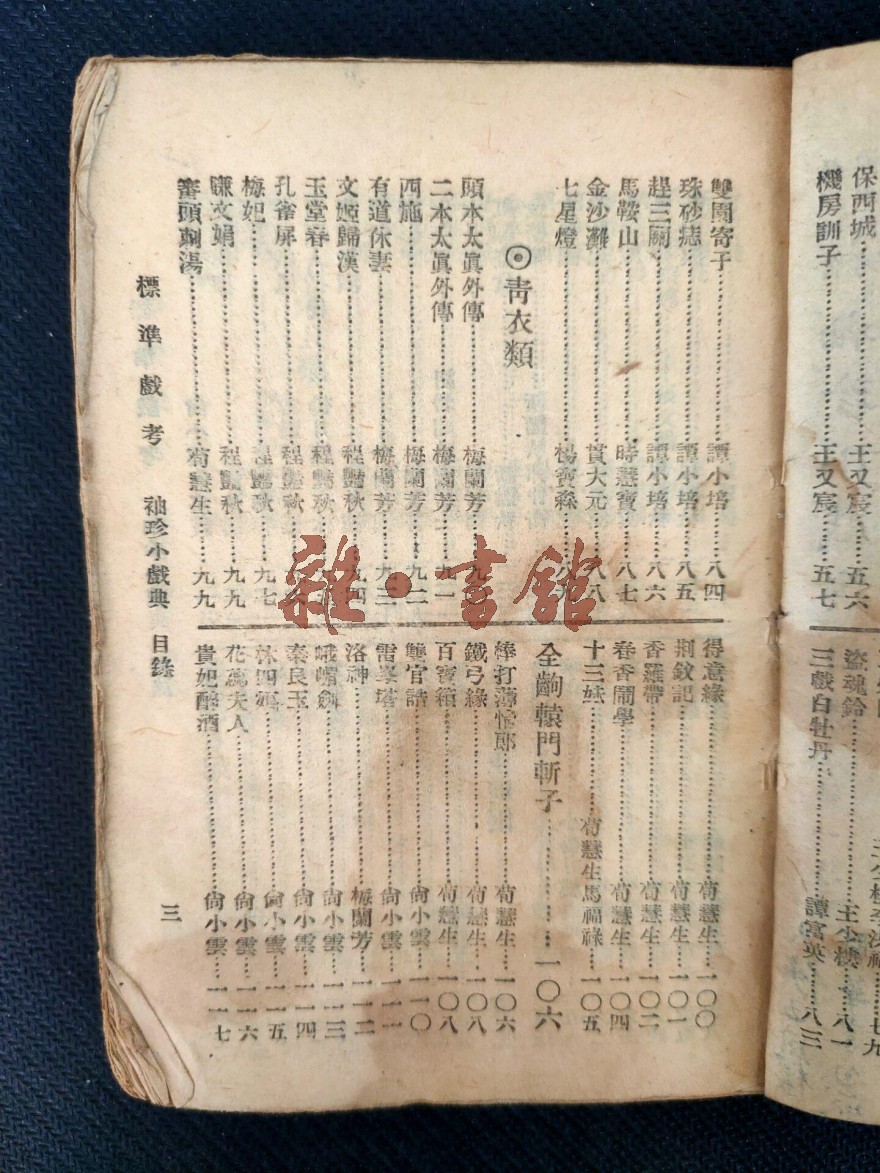 保西城……王又宸……五六
機房訓子……王又宸……五七
盜魂鈴……王少樓……八一
三戲白牡丹……譚富英……八三
雙 寄子……譚小培……八四
珠砂痣……譚小培……八五
趕三關……譚小培……八六
馬鞍山……時慧寶……八七
金沙灘……貫大元……八八
七星燈……楊寶森……八九
◎青衣類
頭本太眞外傳……梅蘭芳……九
二本太眞外傳……梅蘭芳……九一
西施……梅蘭芳……九二
有道休妻……梅蘭芳……九三
文姬歸漢……程艷秋……九四
玉堂春……程艷秋
孔雀屏……程艷秋
梅妃……程艷秋……九七
賺文娟……程艷秋……九九
審頭刺湯……荀慧生……九九
得意緣……荀慧生……一〇〇
荆釵記……荀慧生……一〇一
香羅帶……荀慧生……一〇二
春香鬧學……荀慧生……一〇四
十三妹……荀慧生馬福祿……一〇五
全齣轅門斬子……一〇六
棒打薄情郎……荀慧生……一〇六
鐵弓緣……荀慧生……一〇八
百寶箱……荀慧生……一〇八
雙官誥……尙小雲……一一〇
雷峯塔……尙小雲……一一一
洛神……梅蘭芳……一一二
峨嵋劍……尙小雲……一一三
秦良玉……尙小雲……一一四
林四娘……尙小雲……一一五
花蕊夫人……尙小雲……一一六
貴妃醉酒……尙小雲……一一七
標準戲考 袖珍小戲典 目錄 三
雜·書館